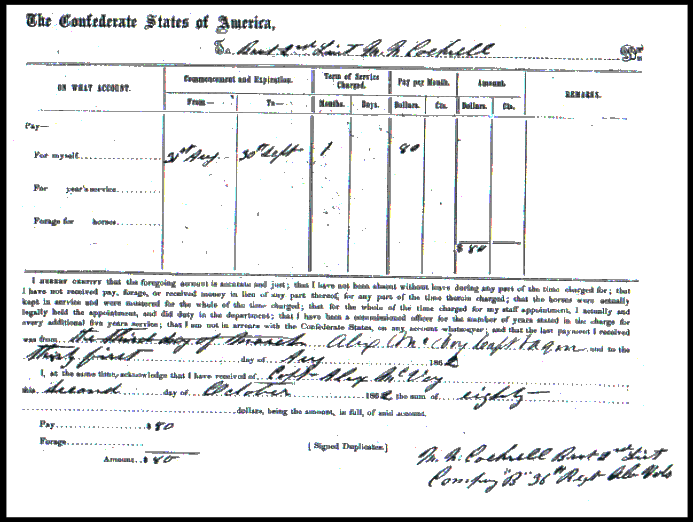 The Confederate States of America,
To Brvt 2nd Lieut M. N. Cockrell Dr.
ON WHAT ACCOUNT. Commencement and Expiration. Term of Service Charged. Pay per Month. Amount. REMARKS.
From— To— Months. Days. Dollars. Cts. Dollars. Cts.
Pay—
For myself 31st Aug 30th Sept 1 80
For year's service
Forage for horses
$ 80
I HEREBY CERTIFY that the foregoing account is accurate and just; that I have not been absent without leave during any part of the time charged for; that
I have not received pay, forage, or received money in lieu of any part thereof, for any part of the time therein charged; that the horses were actually
kept in service and were mustered for the whole of the time charged; that for the whole of the time charged for my staff appointment, I actually and
legally held the appointment, and did duty in the department; that I have been a commissioned officer for the number of years stated in the charge for
every additional five years service; that I am not in arrears with the Confederate States, on any account whatsoever; and that the last payment I received
was from the third day of Alex McVoy Capt and to the
thirty first day of Aug 1862
I, at the same time, acknowledge that I have received of Capt Alex McVoy
this second day of October 1862 the sum of eighty
dollars, being the amount, in full, of said account.
Pay $ 80
Forage
[Signed Duplicates.]
Amount $ 80
M. N. Cockrell Brvt 2nd Lieut
Company "B" 36th Regt Ala Vols